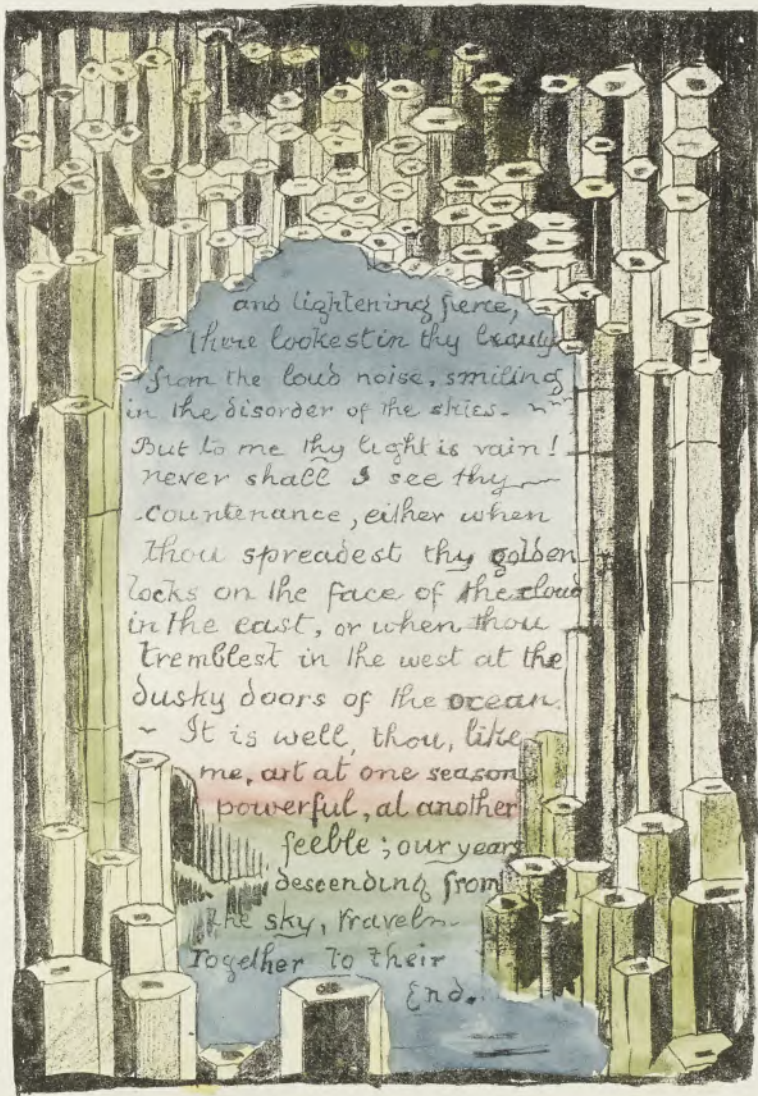 and lightening fierce,
thou lookest in thy beauty
from the loud noise, smiling
in the disorder of the skies.
But to me thy light is vain!
never shall I see thy
countenance, either when
thou spreadest thy golden
locks on the face of the cloud
in the east, or when thou
tremblest in the west at the
dusky doors of the ocean.
~ It is well, thou, like
me, art at one season
powerful, at another
feeble; our years
descending from
the sky, travel
Together To their
End.